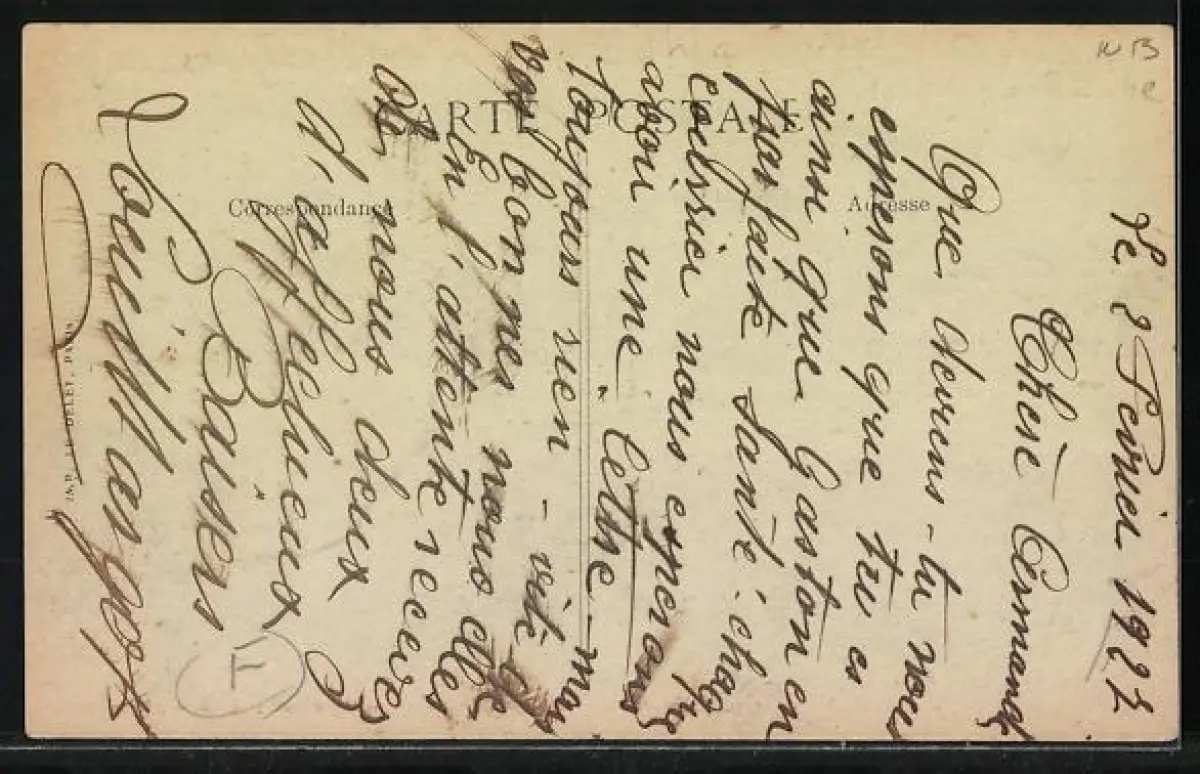 CARTE POSTALE
Correspondance
Adresse
Le 2 Fevrier 1923
Chère Armande
Que deviens-tu nous
esperons que tu es
ainsi que Gaston en
parfaite santé. chaque
courrier nous esperons
avoir une lettre mais
toujours rien - vite de
vos bonnes nouvelles
En l'attente recevez
de nous deux
d'affectueux
Baisers
Louis